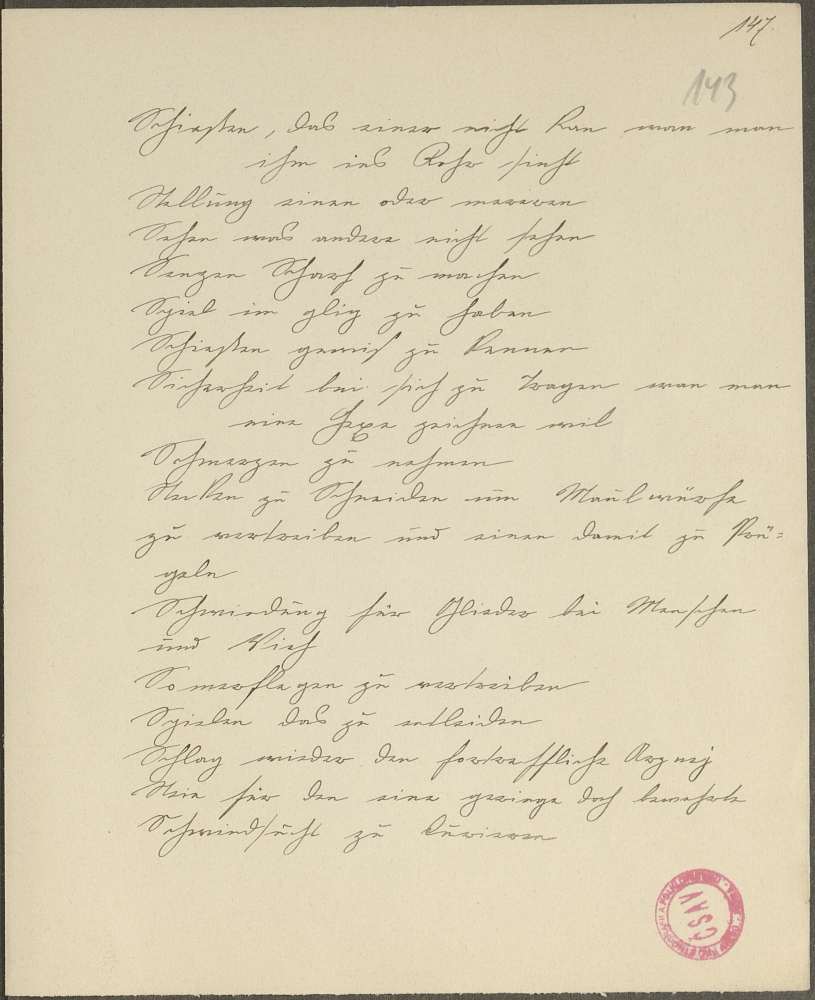 147.
143
Schießen, das einer nicht kan wan man
ihm ins Rohr sieht
Stellung einen oder mereren
Sehen was andere nicht sehen
Sengen Scharf zu machen
Spiel im glig zu haben
Schießen gewis zu kennen
Sicherheit bei sich zu Tragen wan man
eine Hexe zeichnen wil
Schmerzen zu nehmen
Stecken zu Schneiden um Maulwürfe
zu vertreiben und einen damit zu Prü=
geln
Schwindung für Glieder bei Menschen
und Vieh
Somerflegen zu vertreiben
Spielen das zu entleiden
Schlag wieder den fortreffliche Arznej
Stein für den eine geringe doch bewehrte
Schwindsucht zu kurieren
ČSAV